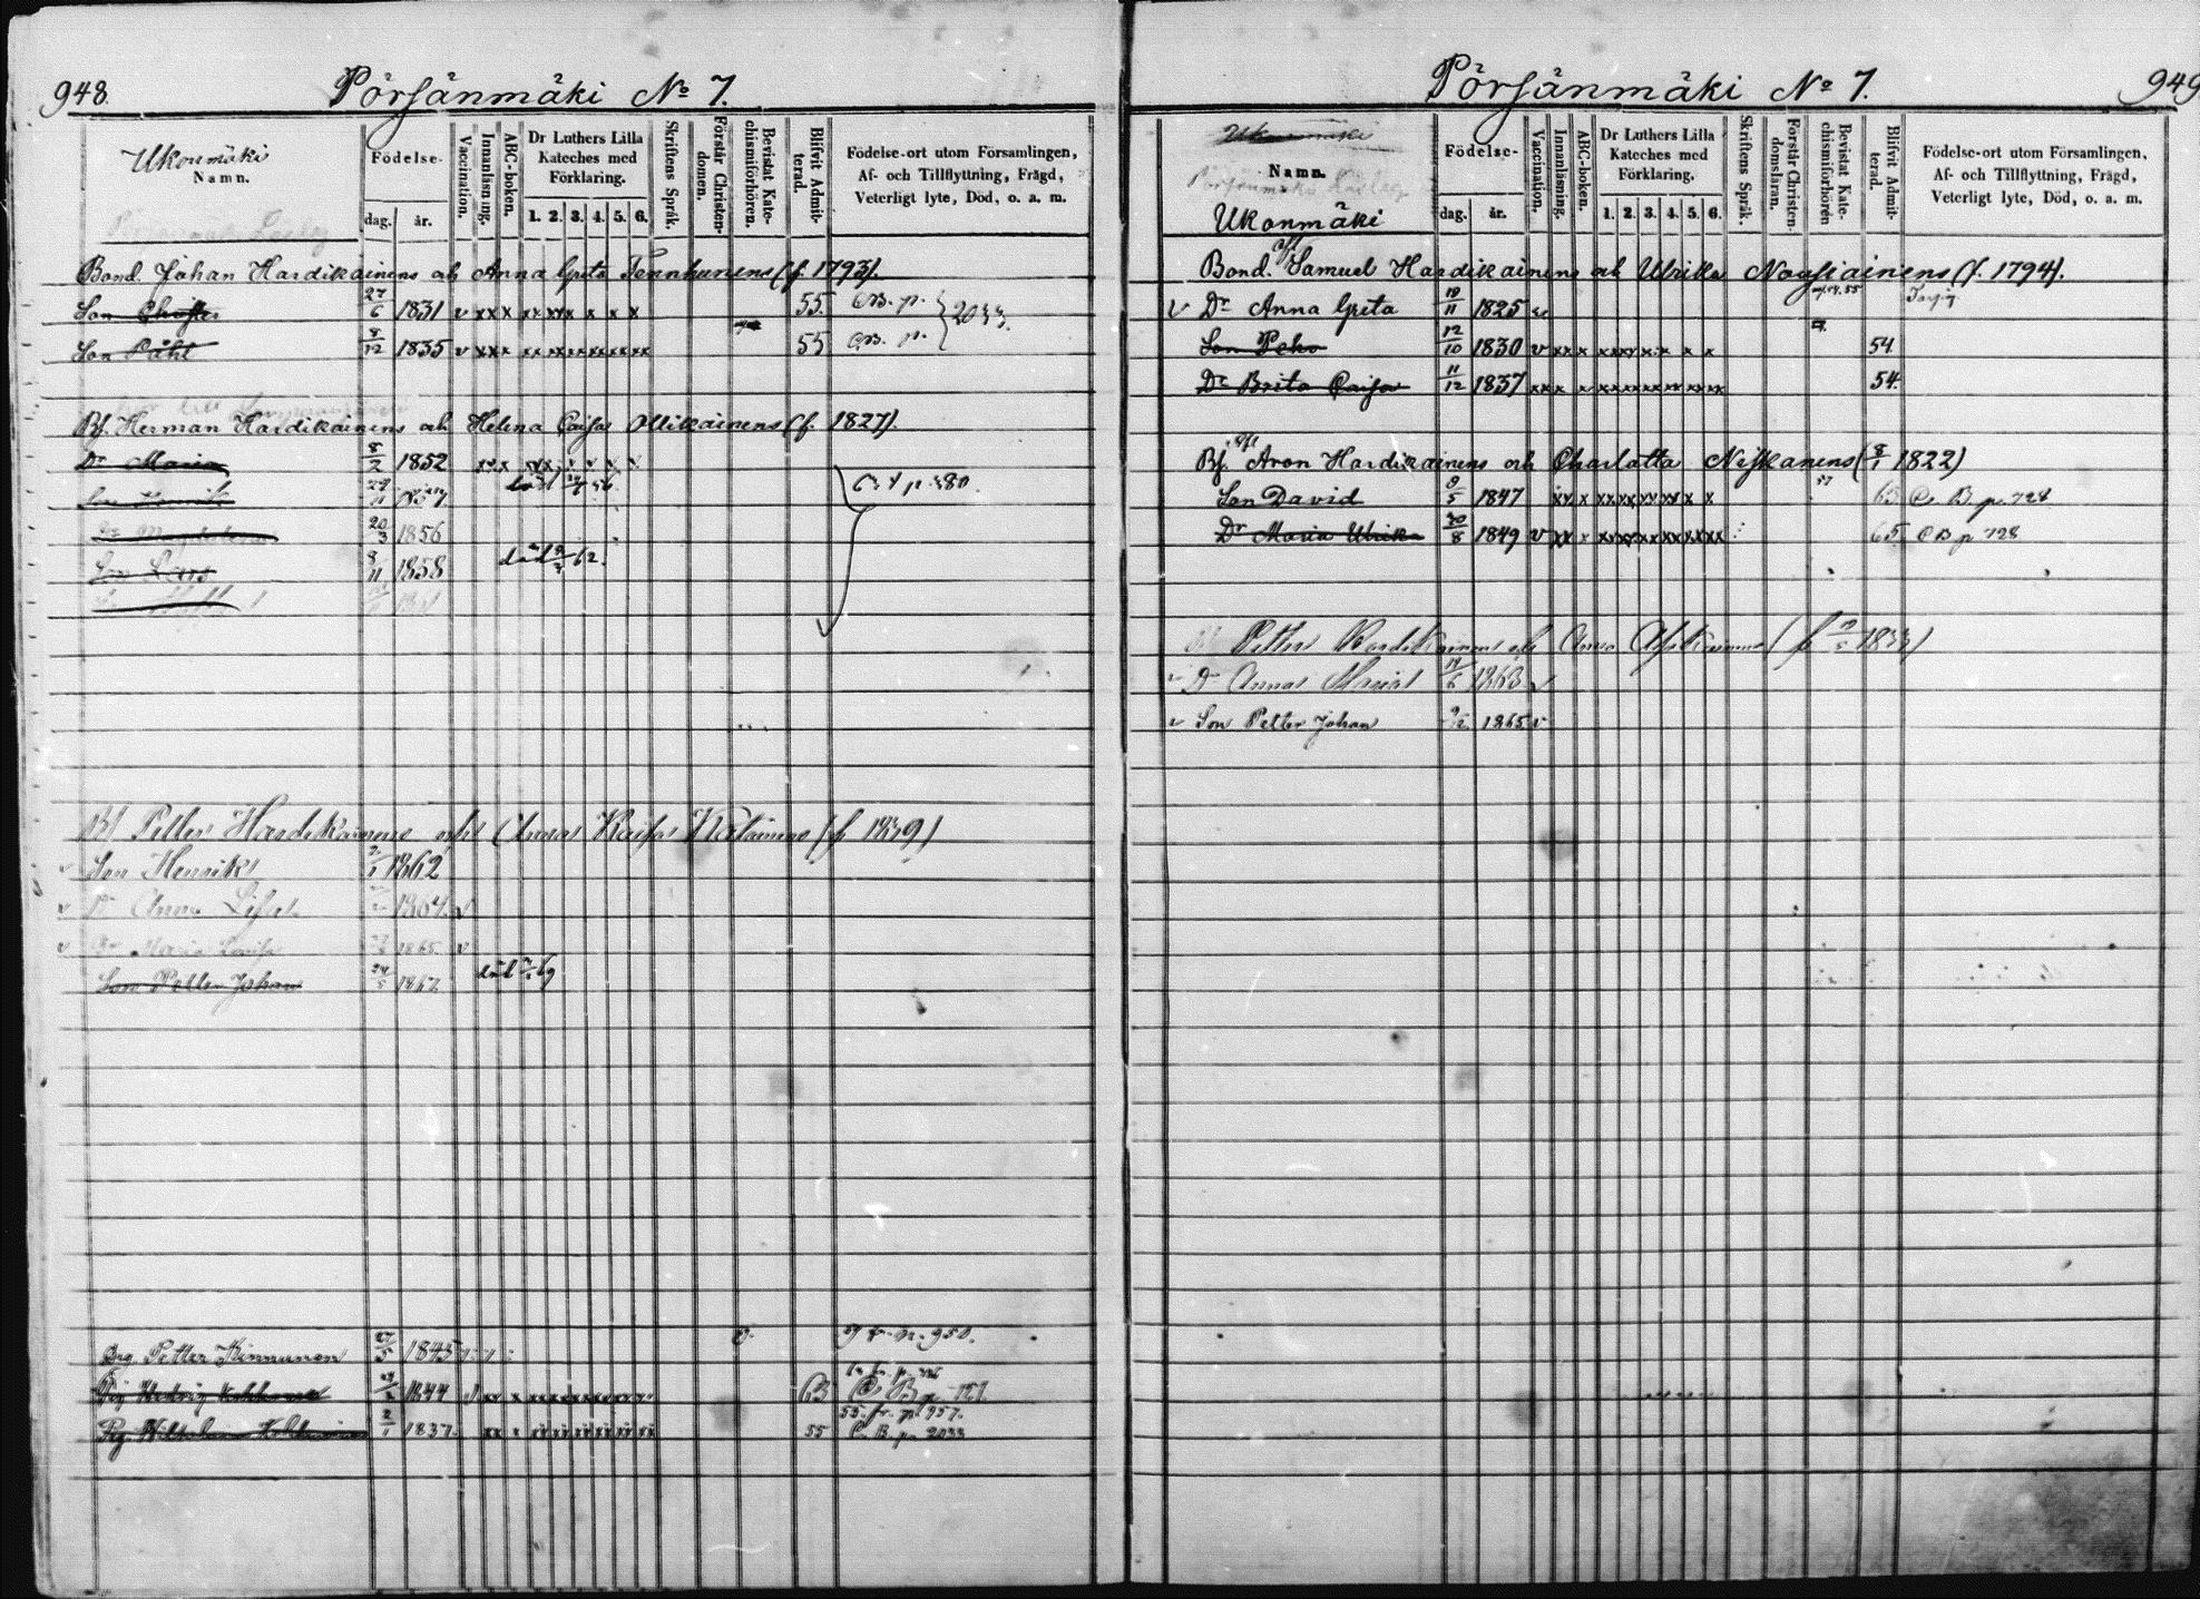 948.
Pörsänmäki No 7.
Ukonmäki
Namn.
Födelse-
dag. år.
Vaccination.
Innanläsning.
ABC-boken.
Dr Luthers Lilla
Kateches med
Förklaring.
1. 2. 3. 4. 5. 6.
Skriftens Språk.
Förstår Christen-
domen.
Bevistat Kate-
chismiförhören.
Blifvit Admit-
terad.
Födelse-ort utom Församlingen,
Af- och Tillflyttning, Frägd,
Veterligt lyte, Död, o. a. m.
Bond. Johan Hardikainens och Anna Greta Tennhunens (f. 1793).
Son 27/6 1831 v xx x xx xx x x x x 55. CB. p. 2033.
Son Påhl 8/12 1835 v xxx xx xx xx xx xx xx 55 CB. p.
Bf. Herman Hardikainens och Helena Caisa Ollikainens (f. 1827).
Dr Maria 8/2 1852
Son Henrik
Dr 20/3 1856
Son Lars 8/11 1858 död 62.
Bf Petter Hardikainens och Anna Kaisa (f 1839)
Son Henrik 1862
v Dr Anna Lisa v
v Dr Maria 1865 v
Son Petter Johan 24/5 1867 död 69
Drg Petter Kinnunen 27/5 1845 fr. p. 950.
Pig Hedvig 1844 63 C. B. p.
Pig 2/1 1837 55 55. fr. p. 957.
C. B. p. 2033
949
Pörsänmäki No 7.
Ukonmäki
Namn.
Ukonmäki
Födelse-
dag. år.
Vaccination.
Innanläsning.
ABC-boken.
Dr Luthers Lilla
Kateches med
Förklaring.
1. 2. 3. 4. 5. 6.
Skriftens Språk.
Förstår Christen-
domsläran.
Bevistat Kate-
chismiförhören
Blifvit Admit-
terad.
Födelse-ort utom Församlingen,
Af- och Tillflyttning, Frägd,
Veterligt lyte, Död, o. a. m.
Bond. afl Samuel Hardikainens och Ulrika Nousiainens (f. 1794).
v Dr Anna Greta 19/11 1825
Son Peko 12/10 1830 v xx x 54.
Dr Brita Caisa 11/12 1837 54.
Bf. afl Aron Hardikainens och Charlotta Niskanens (8/1 1822)
Son David 9/5 1847 63 C. B. p. 728
Dr Maria Ulrika 30/8 1849 v 65 CB p 728
Petter Hardikainens och Anna
v Dr Anna Maria 1863 v
v Son Petter Johan 9/2 1865 v